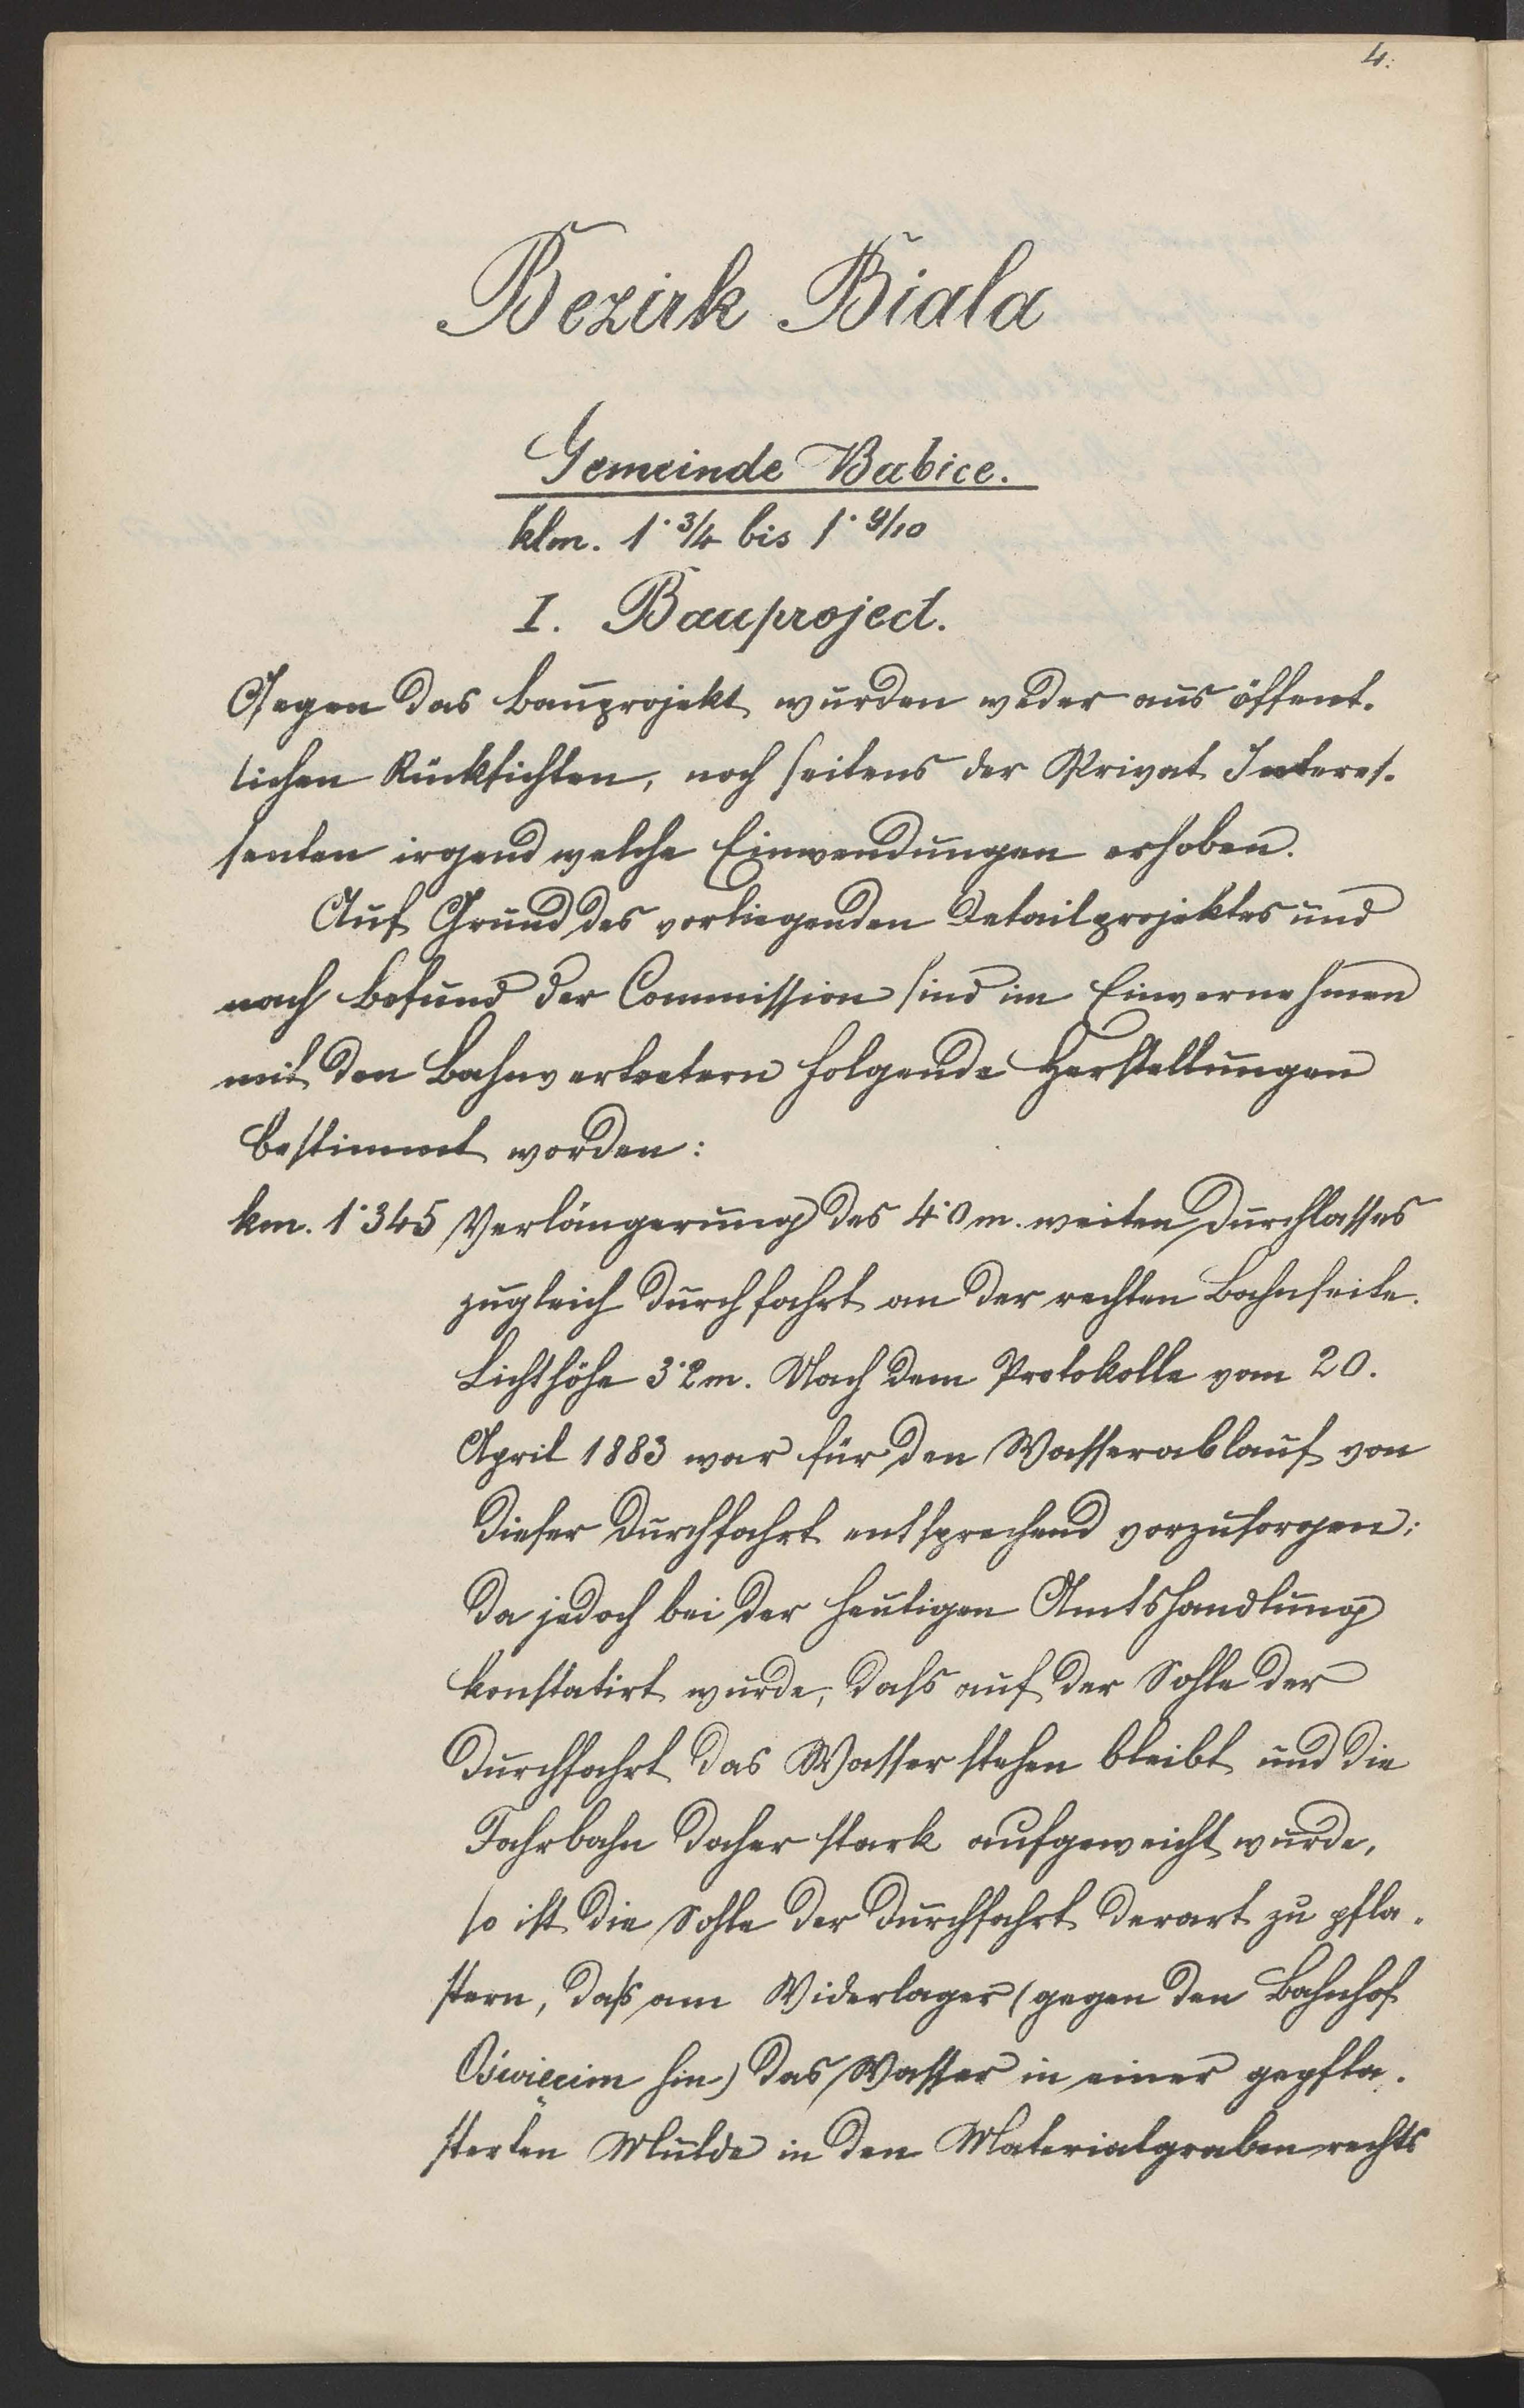 4.
Bezirk Biala
Gemeinde Babice.
klm. 1·3/4 bis 1·9/10
I. Bauproject.
Gegen das Bauprojekt wurden weder aus öffent-
lichen Rücksichten, noch seitens der Privat Interes-
senten irgend welche Einwendungen erhoben.
Auf Grund des vorliegenden Detailprojektes und
nach Befund der Commission sind im Einvernehmen
mit den Bahnvertretern folgende Herstellungen
bestimmt worden:
km. 1·345 Verlängerung des 4·0 m. weiten Durchlasses
zugleich Durchfahrt an der rechten Bahnseite.
Lichthöhe 3·2 m. Nach dem Protokolle vom 20.
April 1883 war für den Wasserablauf von
dieser Durchfahrt entsprechend vorzusorgen;
da jedoch bei der heutigen Amtshandlung
konstatirt wurde, dass auf der Sohle der
Durchfahrt das Wasser stehen bleibt und die
Fahrbahn daher stark aufgeweicht wurde,
so ist die Sohle der Durchfahrt derart zu pfla-
stern, daß am Widerlager (gegen den Bahnhof
Oświęcim hin) das Wasser in einer gepfla-
sterten Mulde in den Materialgraben rechts